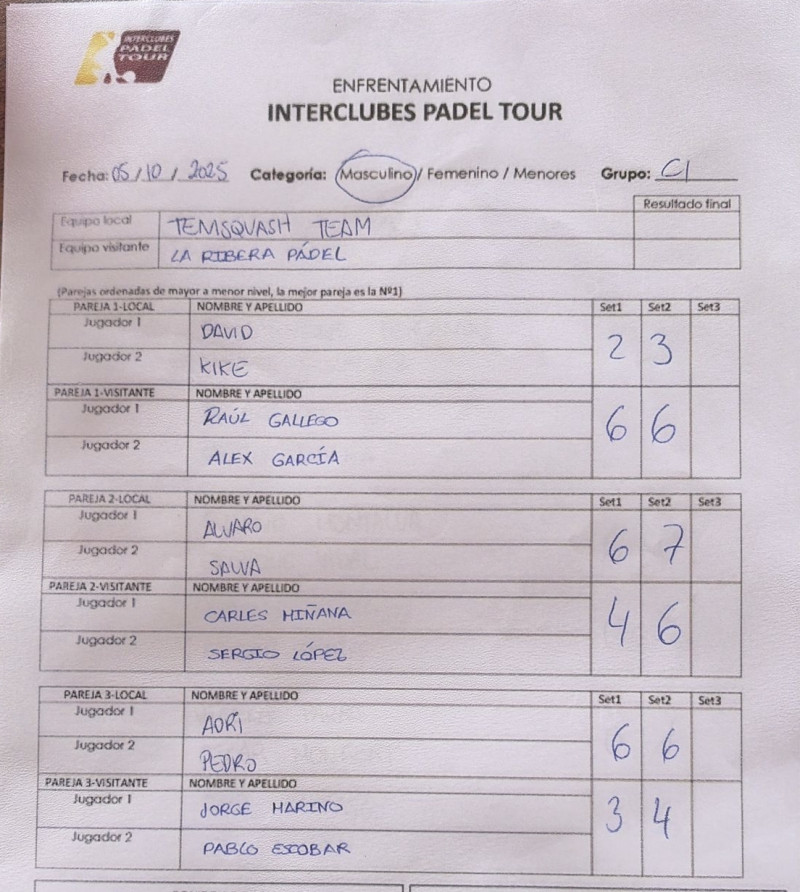 INTERCLUBES
PADEL
TOUR
ENFRENTAMIENTO
INTERCLUBES PADEL TOUR
Fecha: 05 / 10 / 2025 Categoría: Masculino / Femenino / Menores Grupo: C1
Resultado final
Equipo local TEMSQUASH TEAM
Equipo visitante LA RIBERA PÁDEL
(Parejas ordenadas de mayor a menor nivel, la mejor pareja es la Nº1)
PAREJA 1-LOCAL NOMBRE Y APELLIDO Set1 Set2 Set3
Jugador 1 DAVID
2 3
Jugador 2 KIKE
PAREJA 1-VISITANTE NOMBRE Y APELLIDO
Jugador 1 RAÚL GALLEGO
6 6
Jugador 2 ALEX GARCÍA
PAREJA 2-LOCAL NOMBRE Y APELLIDO Set1 Set2 Set3
Jugador 1 ALVARO
6 7
Jugador 2 SALVA
PAREJA 2-VISITANTE NOMBRE Y APELLIDO
Jugador 1 CARLES MIÑANA
4 6
Jugador 2 SERGIO LÓPEZ
PAREJA 3-LOCAL NOMBRE Y APELLIDO Set1 Set2 Set3
Jugador 1 ADRI
6 6
Jugador 2 PEDRO
PAREJA 3-VISITANTE NOMBRE Y APELLIDO
Jugador 1 JORGE MARINO
3 4
Jugador 2 PABLO ESCOBAR